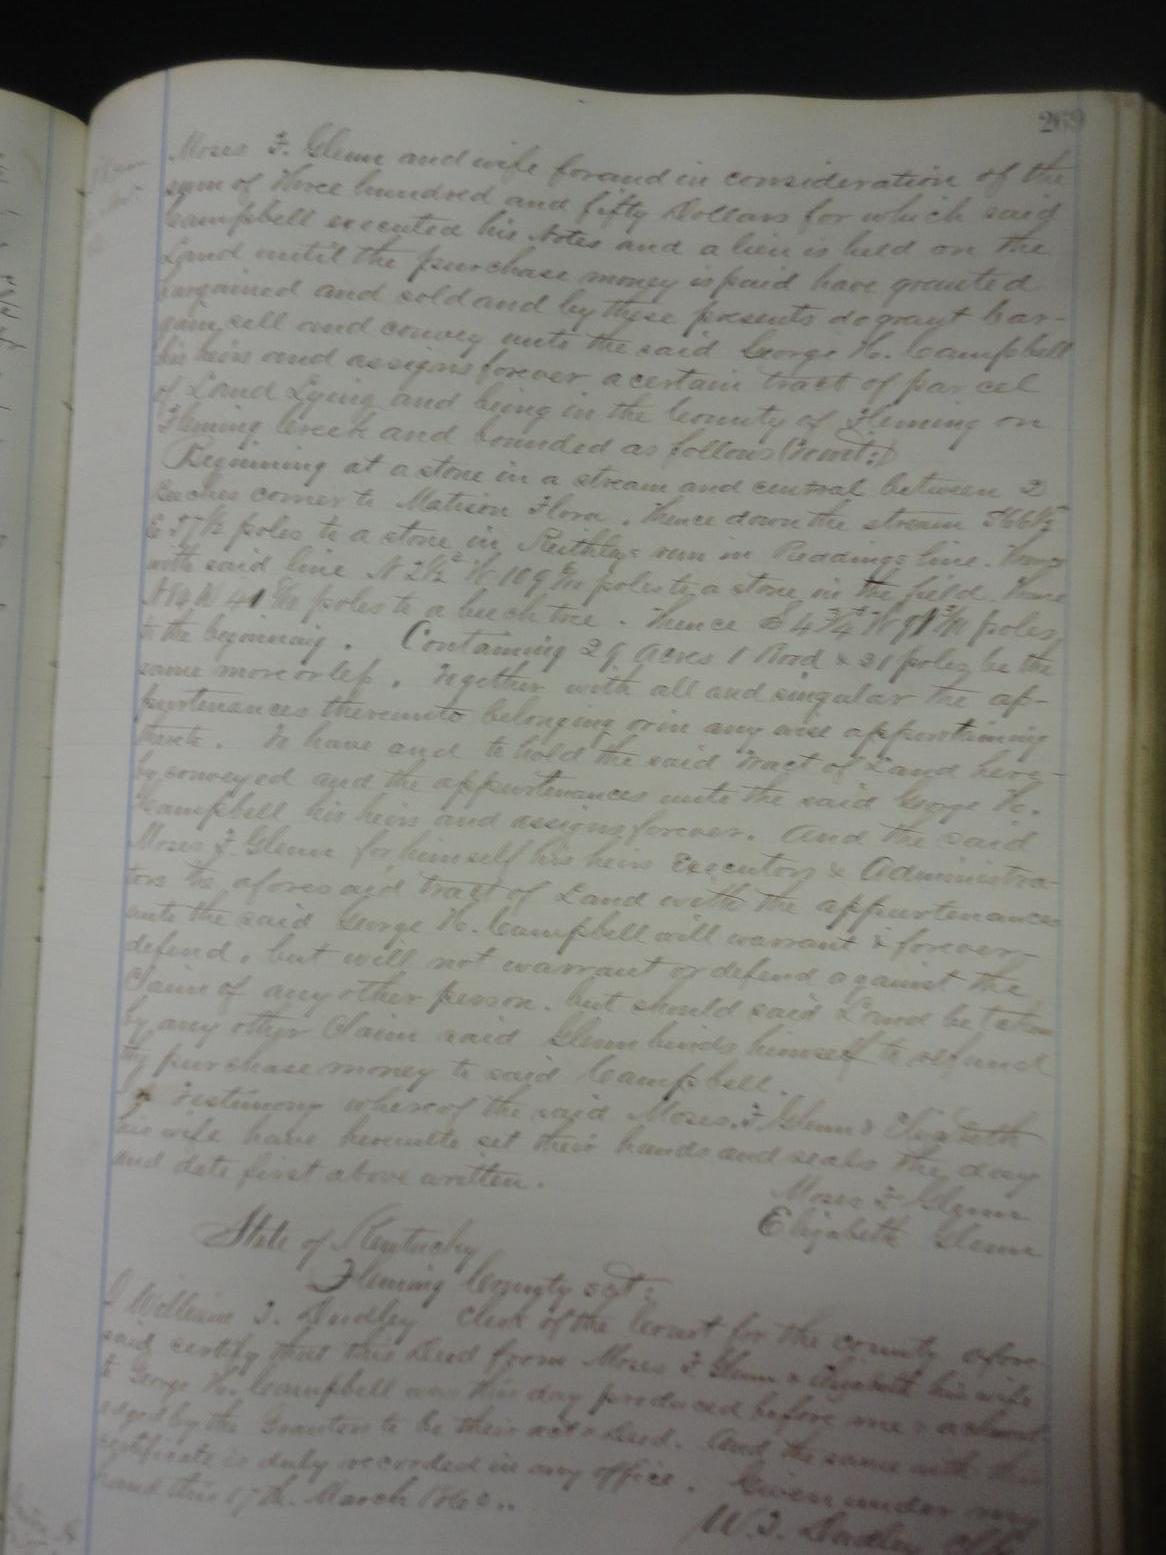 269
Moses F. Glenn and wife for and in consideration of the
sum of Three hundred and fifty Dollars for which said
Campbell executed his Notes and a lien is held on the
Land until the purchase money is paid have granted
bargained and sold and by these presents do grant bar-
gain, sell and convey unto the said George H. Campbell
his heirs and assigns forever a certain tract of parcel
of Land Lying and being in the County of Fleming on
Fleming Creek and bounded as follows (Towit:)
Beginning at a stone in a stream and central between 2
Beeches corner to Matison Flora. Thence down the stream
E poles to a stone in run in Reddings line. Thence
with said line N 2½ W 109 poles to a stone in the field. Thence
W 41 poles to a beech tree. Thence poles
to the beginning. Containing 29 Acres 1 Rood & 21 poles be the
same more or less. Together with all and singular the ap-
purtenances thereunto belonging or in any wise appertaining
thereto. To have and to hold the said Tract of Land here-
by conveyed and the appurtenances unto the said George H.
Campbell his heirs and assigns forever. And the said
Moses F. Glenn for himself his heirs Executors & Administra-
tors the aforesaid tract of Land with the appurtenances
unto the said George H. Campbell will warrant & forever
defend, but will not warrant or defend against the
claim of any other person. but should said Land be taken
by any other Claim said Glenn binds himself to refund
the purchase money to said Campbell.
In Testimony whereof the said Moses F Glenn & Elizabeth
his wife have hereunto set their hands and seals the day
and date first above written.
Moses F Glenn
Elizabeth Glenn
State of Kentucky
Fleming County sct:
I William T. Dudley Clerk of the Court for the county afore-
said certify that this Deed from Moses F Glenn & Elizabeth his wife
to George H. Campbell was this day produced before me & acknowl
edged by the Grantors to be their act & Deed. And the same with this
certificate is duly recorded in my office. Given under my
hand this 17th. March
W. T. Dudley Clk